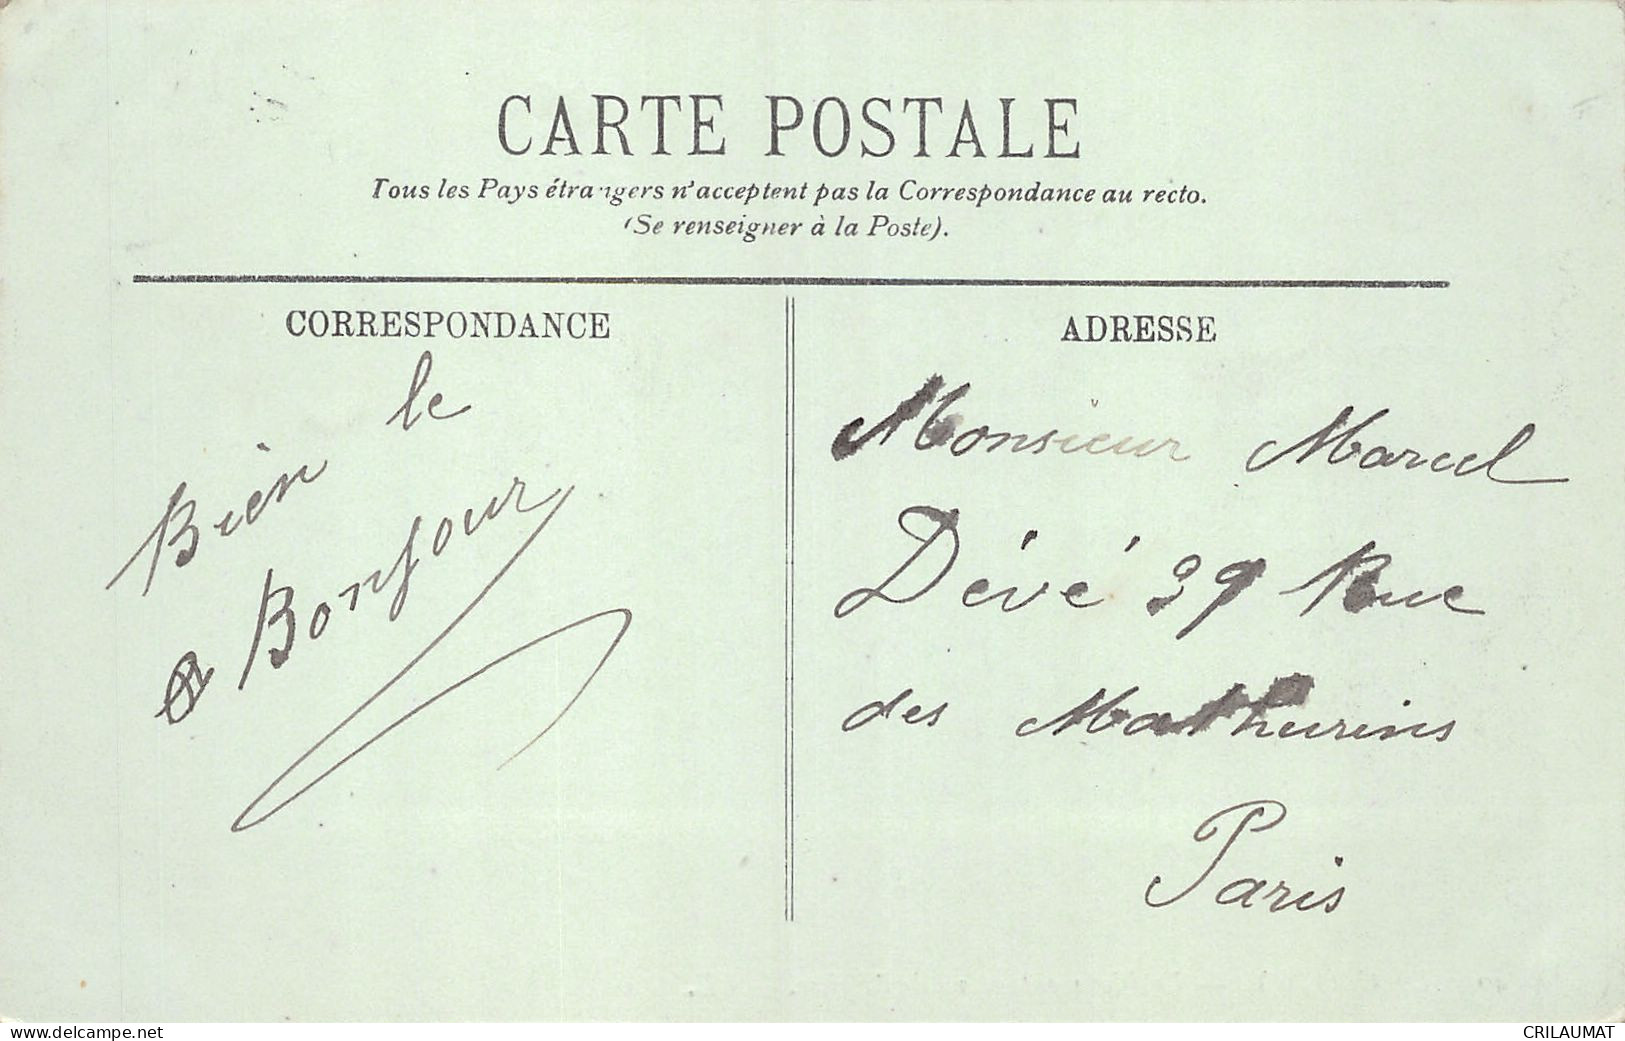 CARTE POSTALE
Tous les Pays étrangers n'acceptent pas la Correspondance au recto.
(Se renseigner à la Poste).
CORRESPONDANCE
Bien le
Bonjour
ADRESSE
Monsieur Marcel
Dévé 39 Rue
des Mathurins
Paris
www.delcampe.net
CRILAUMAT